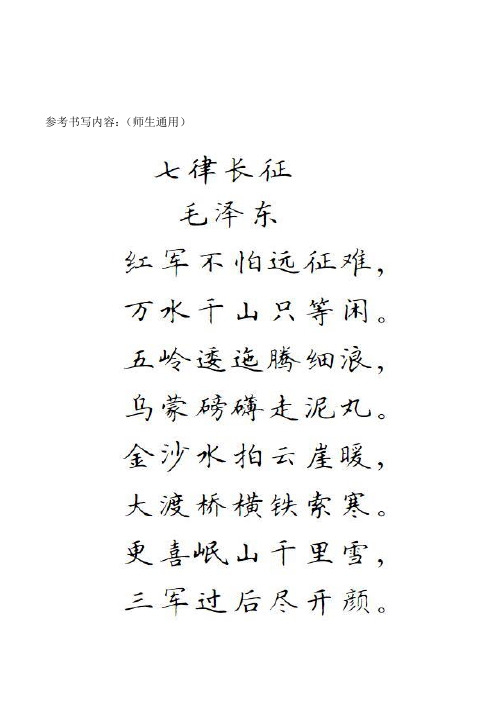 参考书写内容：（师生通用）
七律长征
毛泽东
红军不怕远征难，
万水千山只等闲。
五岭逶迤腾细浪，
乌蒙磅礴走泥丸。
金沙水拍云崖暖，
大渡桥横铁索寒。
更喜岷山千里雪，
三军过后尽开颜。